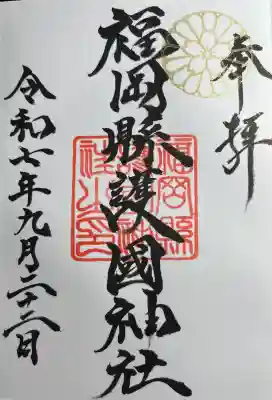 奉拝
福岡縣護國神社
福岡縣護國神社之印
令和七年九月二十二日